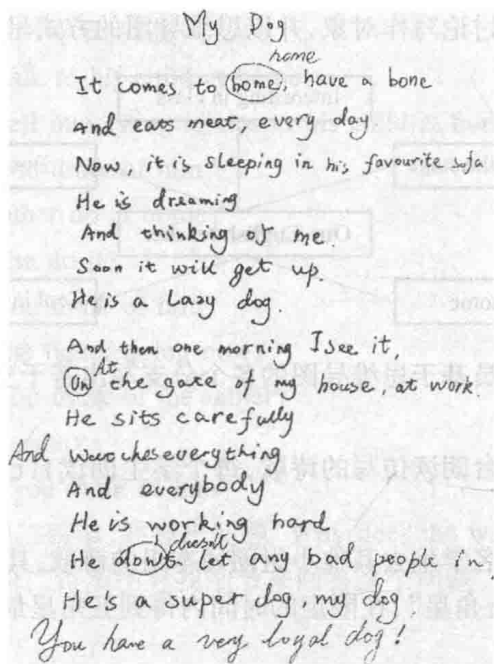 My Dog
home
It comes to home, have a bone
And eats meat every day
Now it is sleeping in his favourite sofa
He is dreaming
And thinking of me.
Soon it will get up.
He is a Lazy dog.
And then one morning I see it,
At
On the gate of my house, at work.
He sits carefully
And Watches everything
And everybody
He is working hard
doesn't
He don't let any bad people in,
He's a super dog, my dog
You have a very loyal dog!